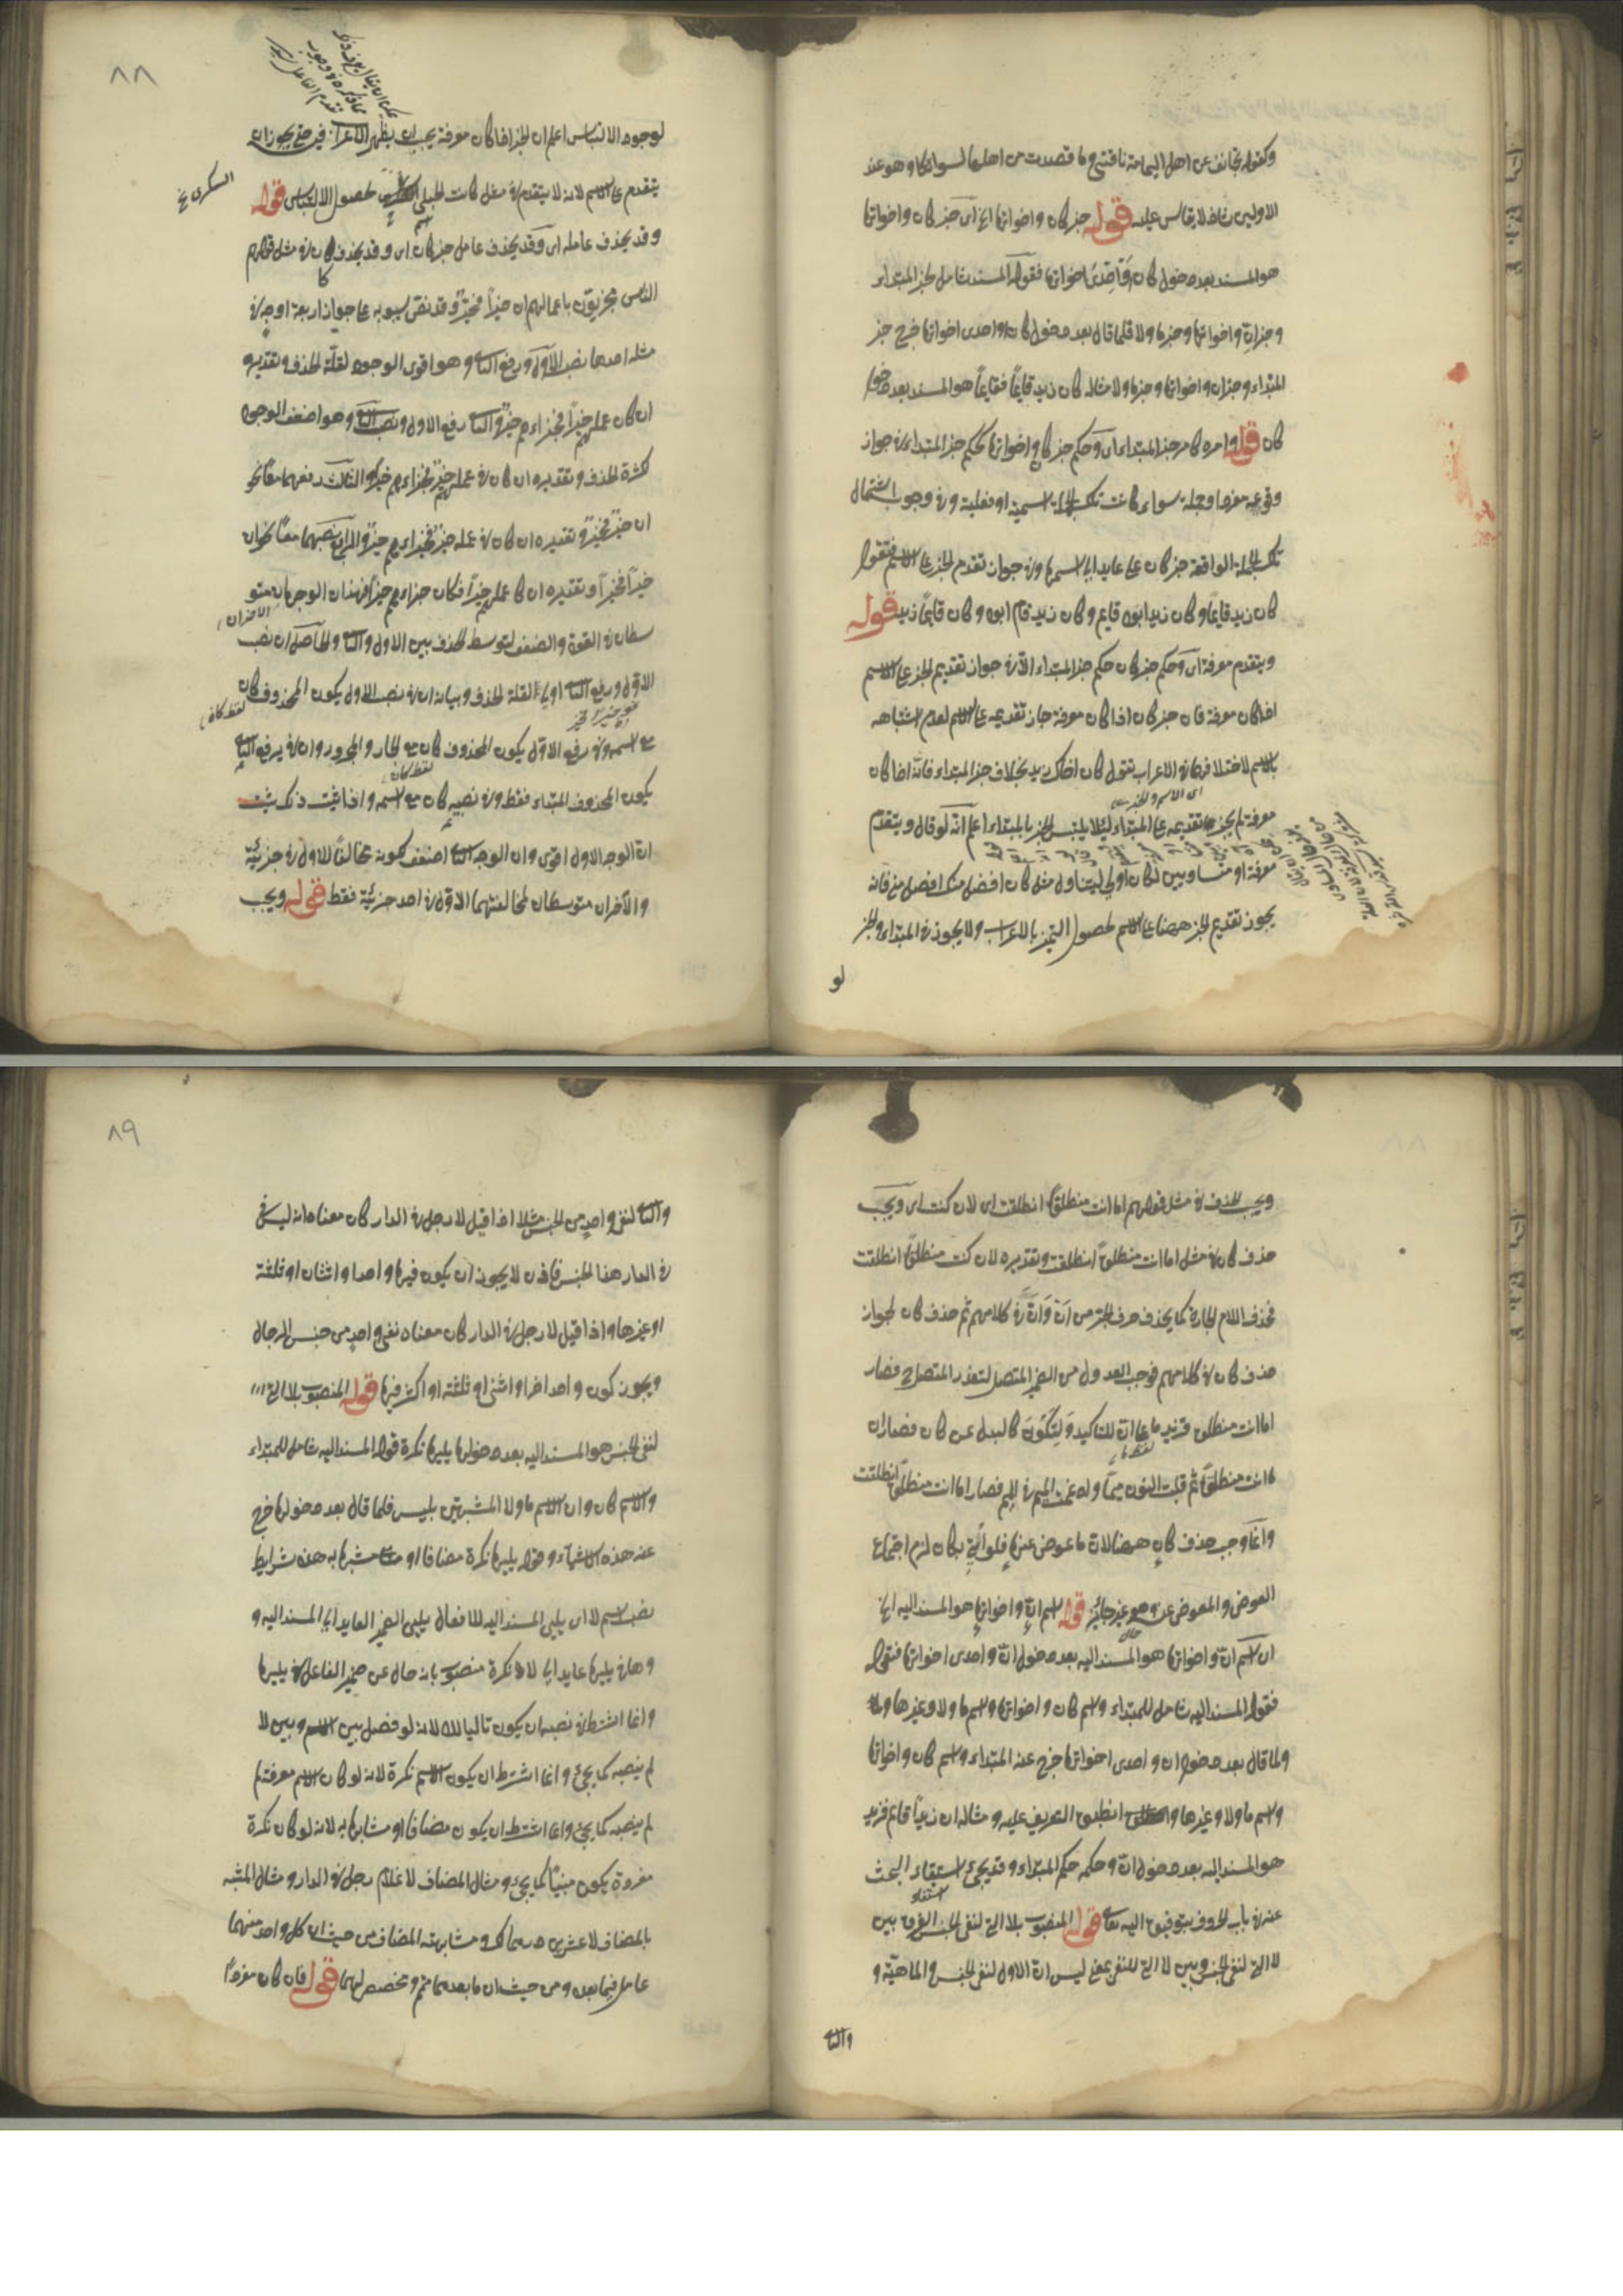 وكقوله تجانف عن اهل اليمامة ناقتي وما قصدت من اهلها لسوائكا وهو عند
الاولين شاذ لا يقاس عليه قوله خبر كان واخواتها الخ اى خبر كان واخواتها
هو المسند بعد دخول كان واحدى اخواتها فقوله المسند شامل لخبر المبتداء
وخبر ان واخواتها وخبر ما ولا فلما قال بعد دخول كان او احدى اخواتها خرج خبر
المبتداء وخبر ان واخواتها وخبر ما ولا مثاله كان زيد قايمًا فقايمًا هو المسند بعد دخول
كان قوله وامره كامر خبر المبتداء اى وحكم خبر كان واخواتها كحكم خبر المبتداء فى جواز
وقوعه مفردا وجملة سواء كانت تلك الجملة اسمية او فعلية وفى وجوب اشتمال
تلك الجملة الواقعة خبر كان على عايد الى اسمها وفى جواز تقدم الخبر على الاسم فتقول
كان زيد قايمًا وكان زيد ابوه قايم وكان زيد قام ابوه وكان قايمًا زيد قوله
ويتقدم معرفة اى وحكم خبر كان حكم خبر المبتداء الا فى جواز تقديم الخبر على الاسم
اذا كان معرفة فان خبر كان اذا كان معرفة جاز تقديمه على الاسم لعدم اشتباهه
بالاسم لاختلافهما فى الاعراب تقول كان اخاك زيد بخلاف خبر المبتداء فانه اذا كان
اى الاسم والخبر
معرفة لم يجز تقديمه على المبتداء لئلا يلتبس الخبر بالمبتداء اعلم انه لو قال ويتقدم
معرفة او متساويين لكان اولى ليتناول مثل كان افضل منك افضل منى فانه
يجوز تقديم الخبر ههنا على الاسم لحصول التميز بالاعراب ولا يجوز فى المبتداء والخبر
لو
٨٨
لوجود الالتباس اعلم ان الخبر اذا كان معرفة يجب ان يظهر الاعراب فيه حتى يجوز ان
يتقدم على الاسم لانه لا يتقدم فى مثل كانت الحبلى لحصول الالتباس قوله
السكرى
وقد يحذف عامله اى وقد يحذف عامل خبر كان اى وقد يحذف كان فى مثل قولهم
الناس مجزيون باعمالهم ان خيرًا فخيرٌ وقد نص سيبويه على جواز اربعة اوجه فى
مثله احدها نصب الاول ورفع الثانى وهو اقوى الوجوه لقلة الحذف وتقديره
ان كان عملهم خيرًا فجزاءهم خير والثانى رفع الاول ونصب الثانى وهو اضعف الوجوه
لكثرة الحذف وتقديره ان كان فى عملهم خير فجزاءهم خيرًا والثالث رفعهما معًا نحو
ان خيرٌ فخيرٌ وتقديره ان كان فى عمله خير فجزاءهم خير والرابع نصبهما معًا نحو ان
خيرًا فخيرًا وتقديره ان كان عملهم خيرًا فكان جزاءهم خيرًا فهذان الوجهان متو
الاخيران
سطان فى القوة والضعف لتوسط الحذف بين الاول والثانى والحاصل ان نصب
الاول ورفع الثانى اولى لقلة الحذف وبيانه ان فى نصب الاول يكون المحذوف كان
لفظ كان
مع اسمه وفى رفع الاول يكون المحذوف كان مع الجار والمجرور وان فى رفع الثانى
لفظ كان
يكون المحذوف المبتداء فقط وفى نصبه كان مع اسمه واذا ثبت ذلك ثبت
ان الوجه الاول اقوى وان الوجه الثانى اضعف لكونه مخالفًا للاول فى جزئية
والآخران متوسطان لمخالفتهما الاول فى احد جزئية فقط قوله ويجب
ويجب الحذف فى مثل قولهم اما انت منطلقًا انطلقت اى لان كنت اى ويجب
حذف كان فى مثل اما انت منطلقًا انطلقت وتقديره لان كنت منطلقًا انطلقت
فحذف اللام الجارة كما يحذف حرف الجر من انْ وانّ فى كلامهم ثم حذف كان لجواز
حذف كان فى كلامهم فوجب العدول من الضمير المتصل لتعذر المتصل فصار
اما انت منطلق فزيد ما على ان للتاكيد ولتكون كالبدل عن كان فصار ان
لفظ ما
ما انت منطلقًا ثم قلبت النون ميمًا وادغمت الميم فى الميم فصار اما انت منطلقًا انطلقت
وانما وجب حذف كان ههنا لان ما عوض عنها فلو اتى بكان لزم اجتماع
العوض والمعوض عنه وهو غير جائز قوله اسم ان واخواتها هو المسند اليه الخ
اى اسم ان واخواتها هو المسند اليه بعد دخول ان واحدى اخواتها فقوله
فقوله المسند اليه شامل للمبتداء واسم كان واخواتها واسم ما ولا وغيرها
ولما قال بعد دخول ان واحدى اخواتها خرج عنه المبتداء واسم كان واخواتها
واسم ما ولا وغيرها انطبق التعريف عليه ومثاله ان زيدًا قايم فزيد
هو المسند اليه بعد دخول ان وحكمه حكم المبتداء وقد يجئ استيفاء البحث
عنه فى باب الحروف بتوفيق اليه تعالى قوله المنصوب بلا التى لنفى الجنس الفرق بين
لا التى لنفى الجنس وبين لا التى للنفى بمعنى ليس ان الاول لنفى الجنس والماهية و
والثانى
٨٩
والثانى لنفى واحد من الجنس مثلا اذا قيل لا رجل فى الدار كان معناه انه ليس فى
فى الدار هذا الجنس فاذن لا يجوز ان يكون فيها واحد او اثنان او ثلثة
او غيرها واذا قيل لا رجل فى الدار كان معناه نفى واحد من جنس الرجال
ويجوز كون واحد اخر او اثنى او ثلثة او اكثر فيها قوله المنصوب بلا التى
لنفى الجنس هو المسند اليه بعد دخولها يليها نكرة قوله المسند اليه شامل للمبتداء
والاسم كان وان الاسم ما ولا المشبهتين بليس فلما قال بعد دخولها خرج
عنه هذه الاشياء وقوله يليها نكرة مضافا او مشبها به هذه شرايط
نصب اسم لا اى يلى المسند اليه للا ففاعل يليى الضمير العايد الى المسند اليه و
وها فى يليها عايد الى لا ونكرة منصوب بانه حال عن ضمير الفاعل فى يليها
وانما اشترط فى نصبه ان يكون تاليا للا لانه لو فصل بين الاسم وبين لا
لم ينصبه كما يجئ وانما اشترط ان يكون الاسم نكرة لانه لو كان الاسم معرفة لم
لم ينصبه كما يجئ وانما اشترط ان يكون مضافا او مشابها به لانه لو كان نكرة
مفردة يكون مبنيًا كما يجئ ومثال المضاف لا غلام رجل فى الدار ومثال المشبه
بالمضاف لا عشرين درهما لك ومشابهته المضاف من حيث ان كل واحد منهما
عامل فيما بعده ومن حيث ان ما بعدهما متمم ومخصص لهما قوله فان كان مفردًا